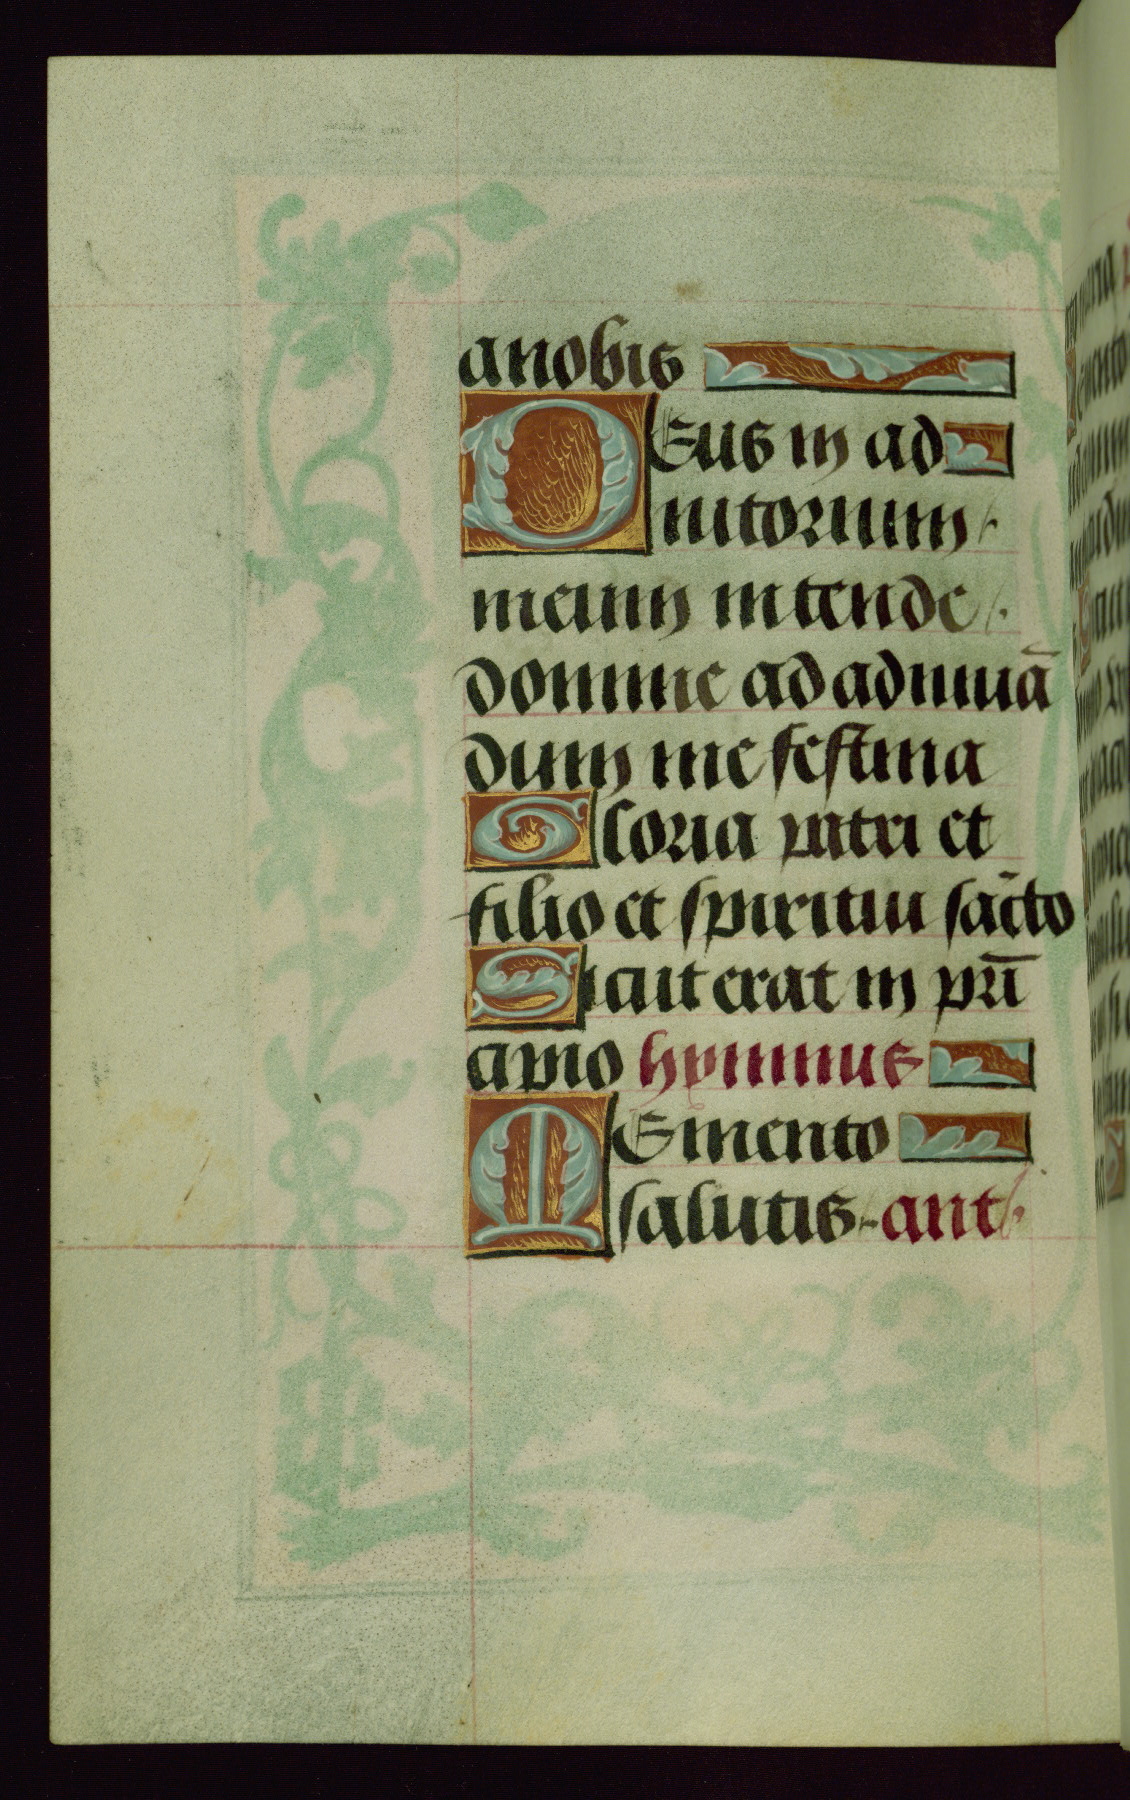 anobis
Deus in ad
iutorium
meum intende
domine ad adiuuā
dum me festina
Gloria patri et
filio et spiritui sācto
Sicut erat in pri̅
cipio hymnus
Memento
salutis ant